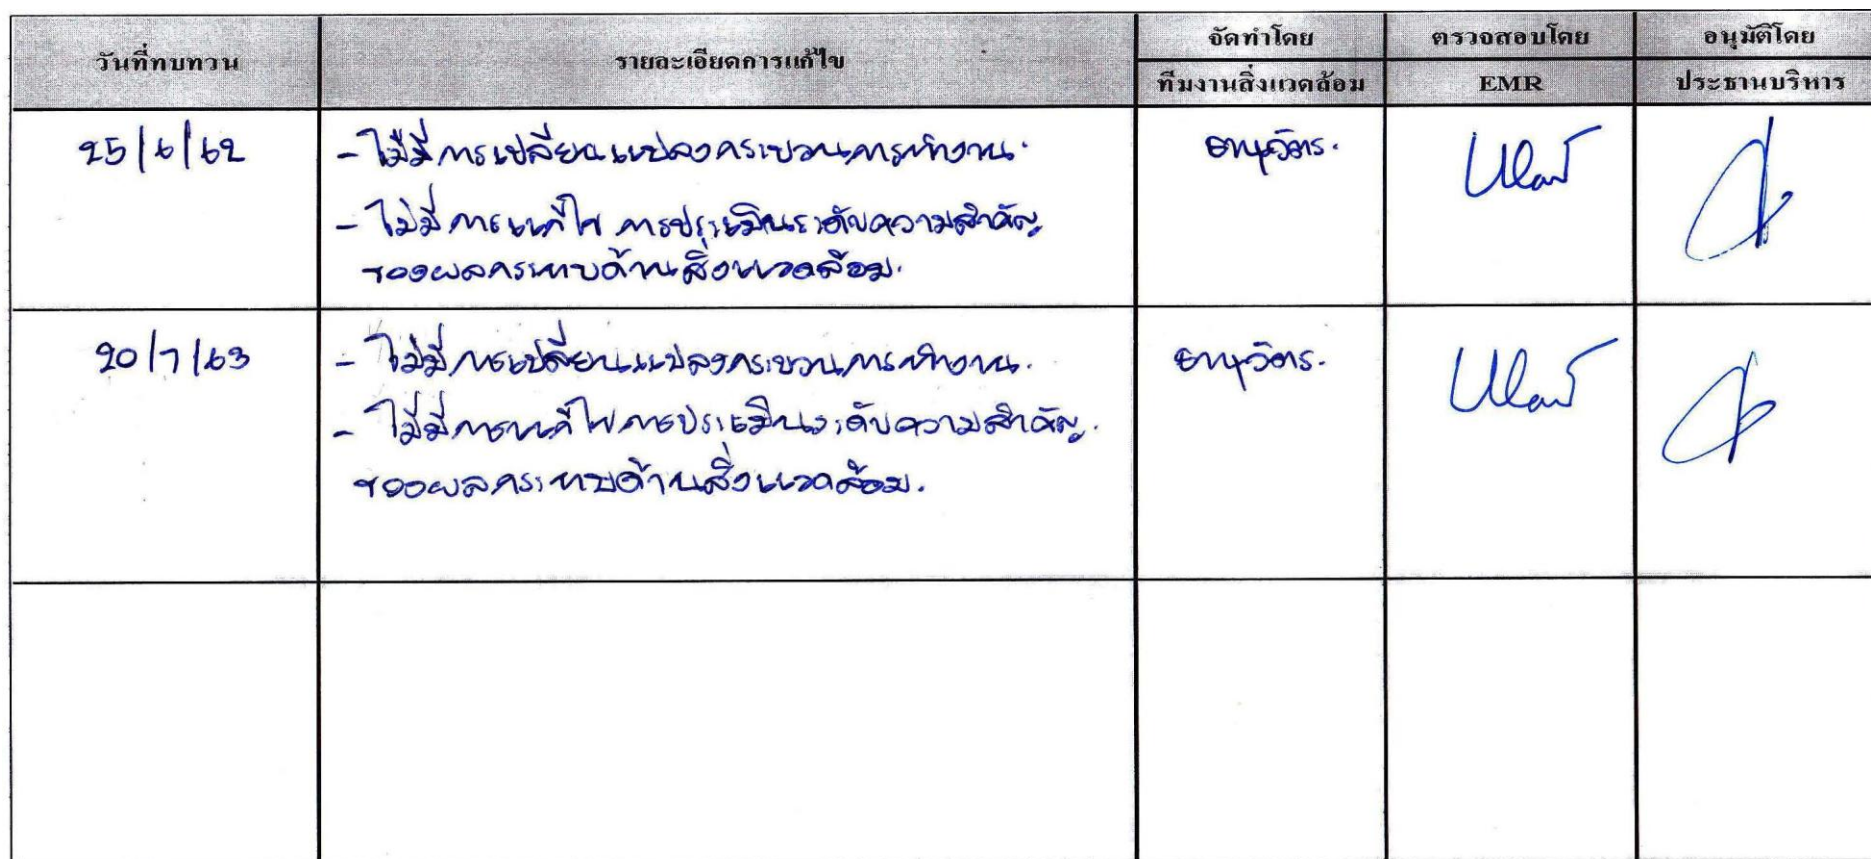 วันที่ทบทวน รายละเอียดการแก้ไข จัดทำโดย ตรวจสอบโดย อนุมัติโดย
ทีมงานสิ่งแวดล้อม EMR ประธานบริหาร
25/6/62 - ไม่มีการเปลี่ยนแปลงกระบวนการทำงาน. อานุวัตร.
- ไม่มีการแก้ไข การประเมินระดับความสำคัญ
ของผลกระทบด้านสิ่งแวดล้อม.
20/7/63 - ไม่มีการเปลี่ยนแปลงกระบวนการทำงาน. อานุวัตร.
- ไม่มีการแก้ไขการประเมินระดับความสำคัญ.
ของผลกระทบด้านสิ่งแวดล้อม.